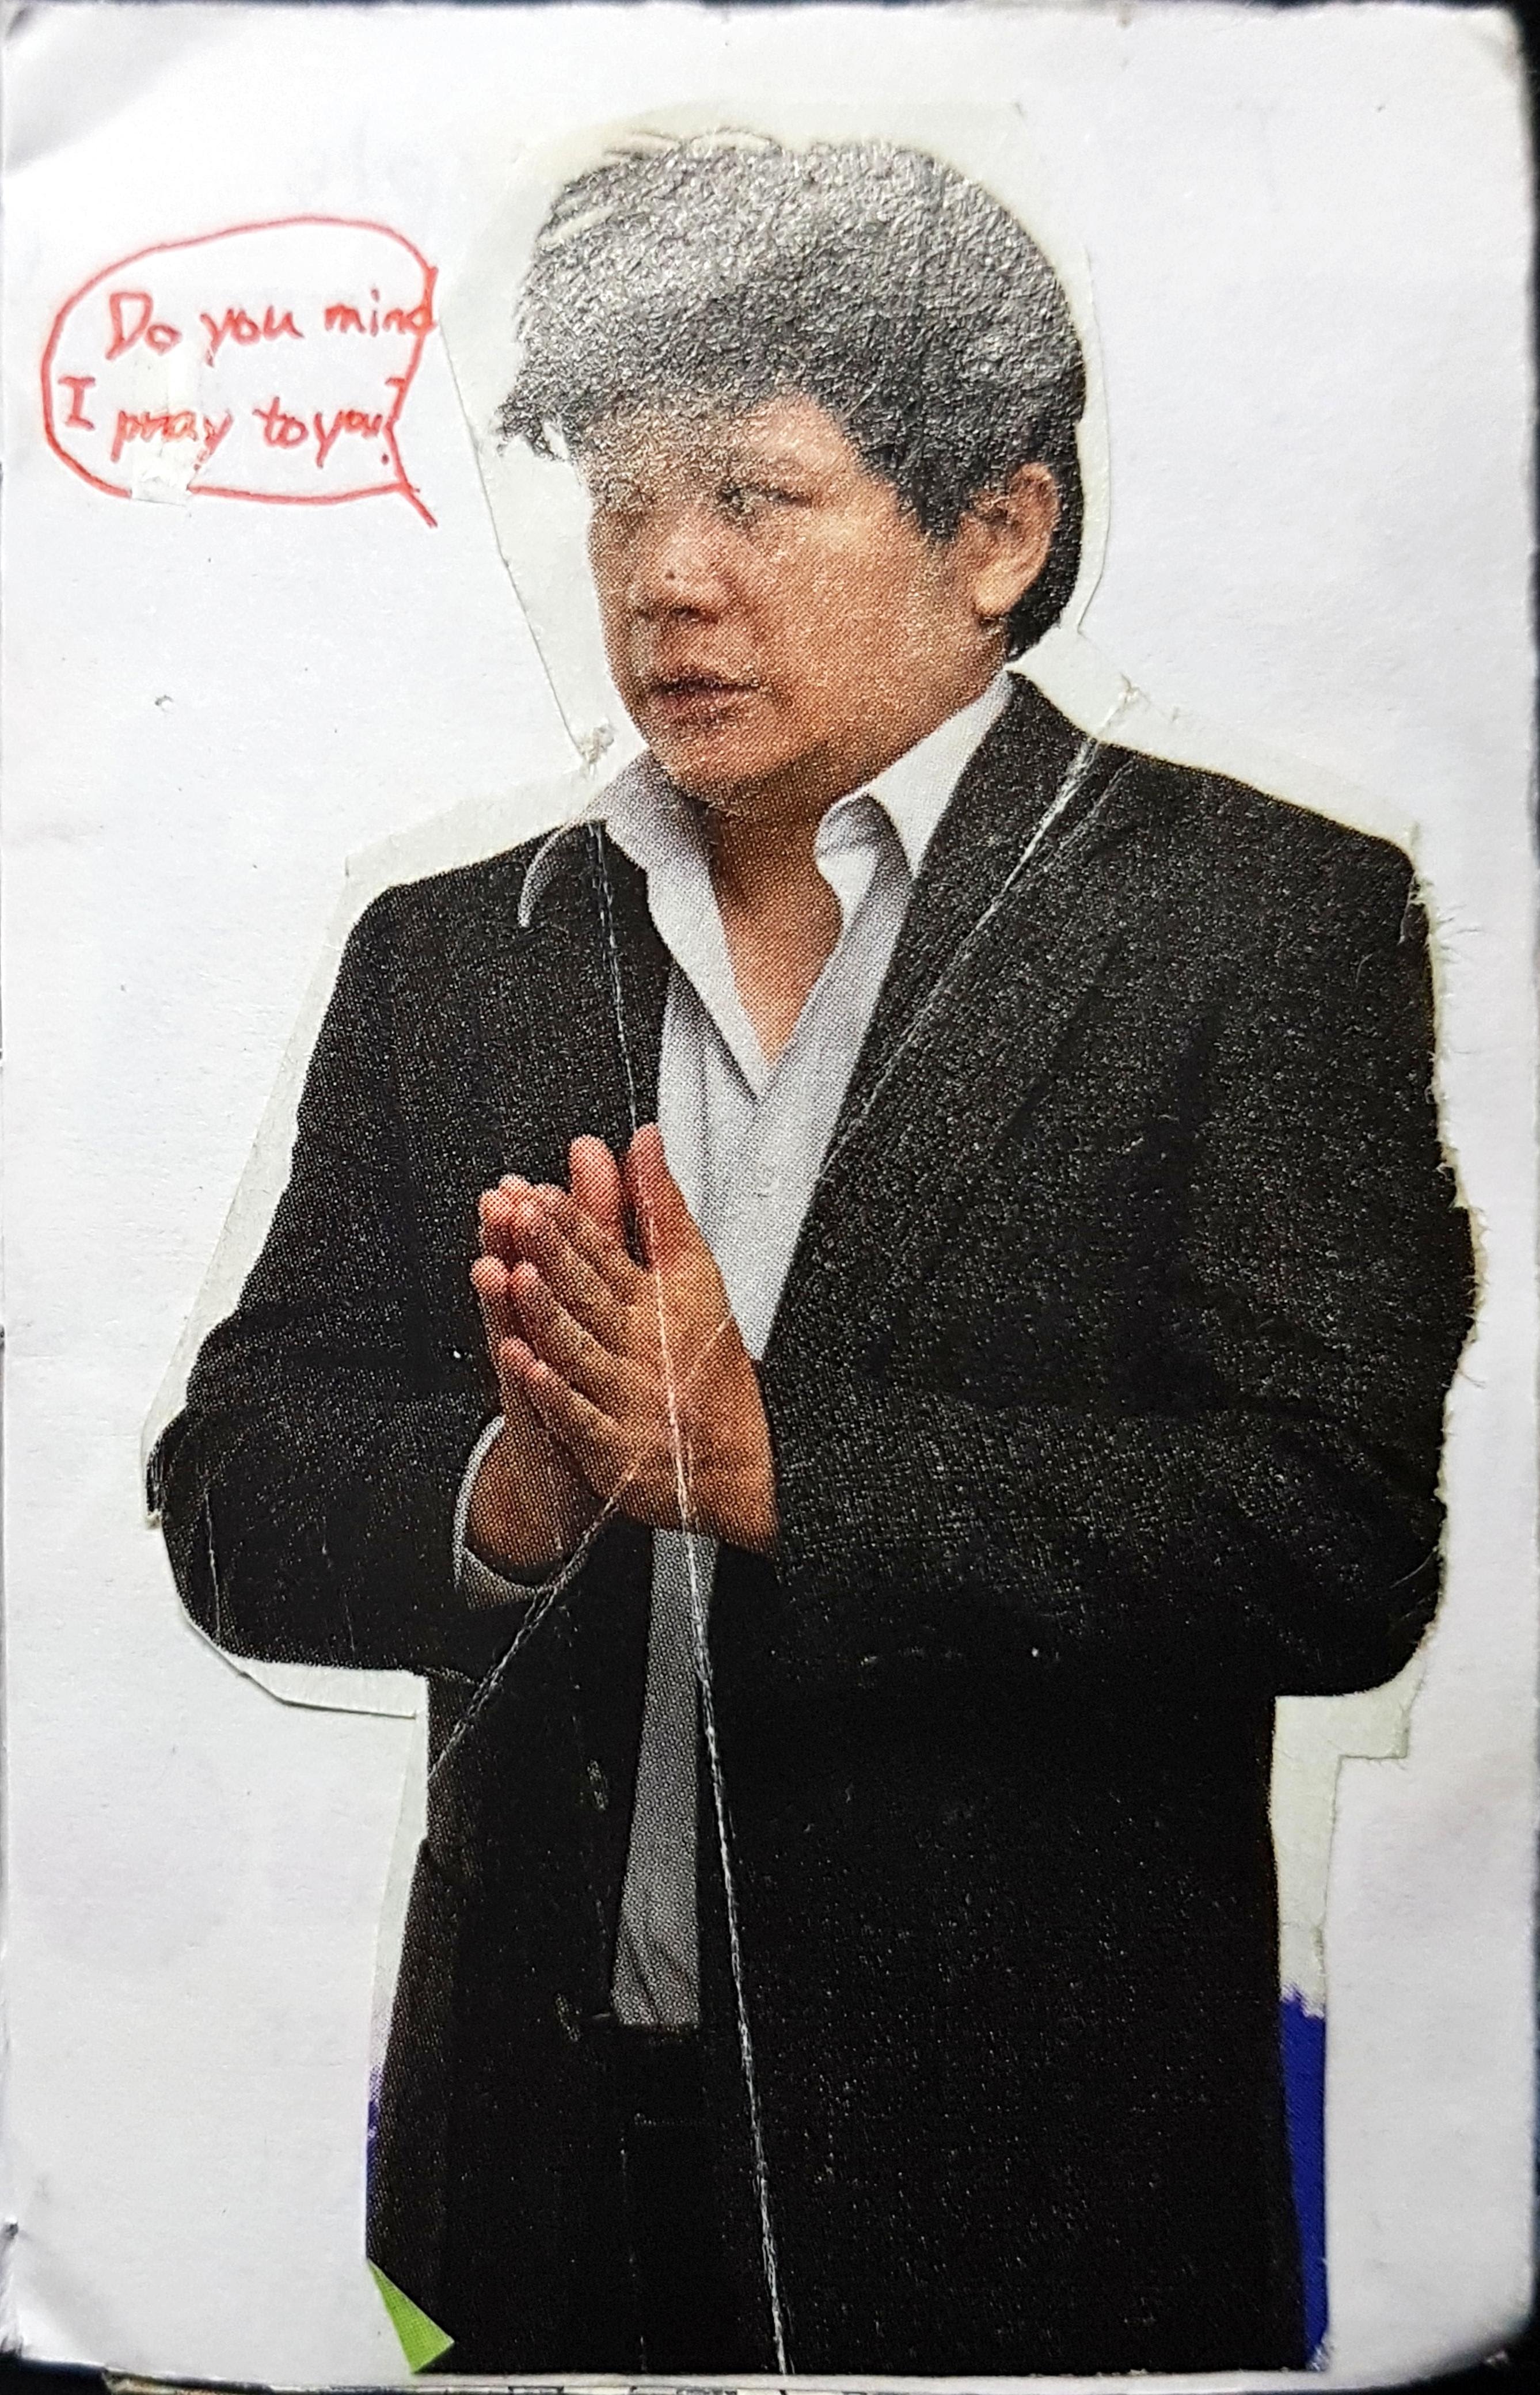 Do you mind
I pray to you?